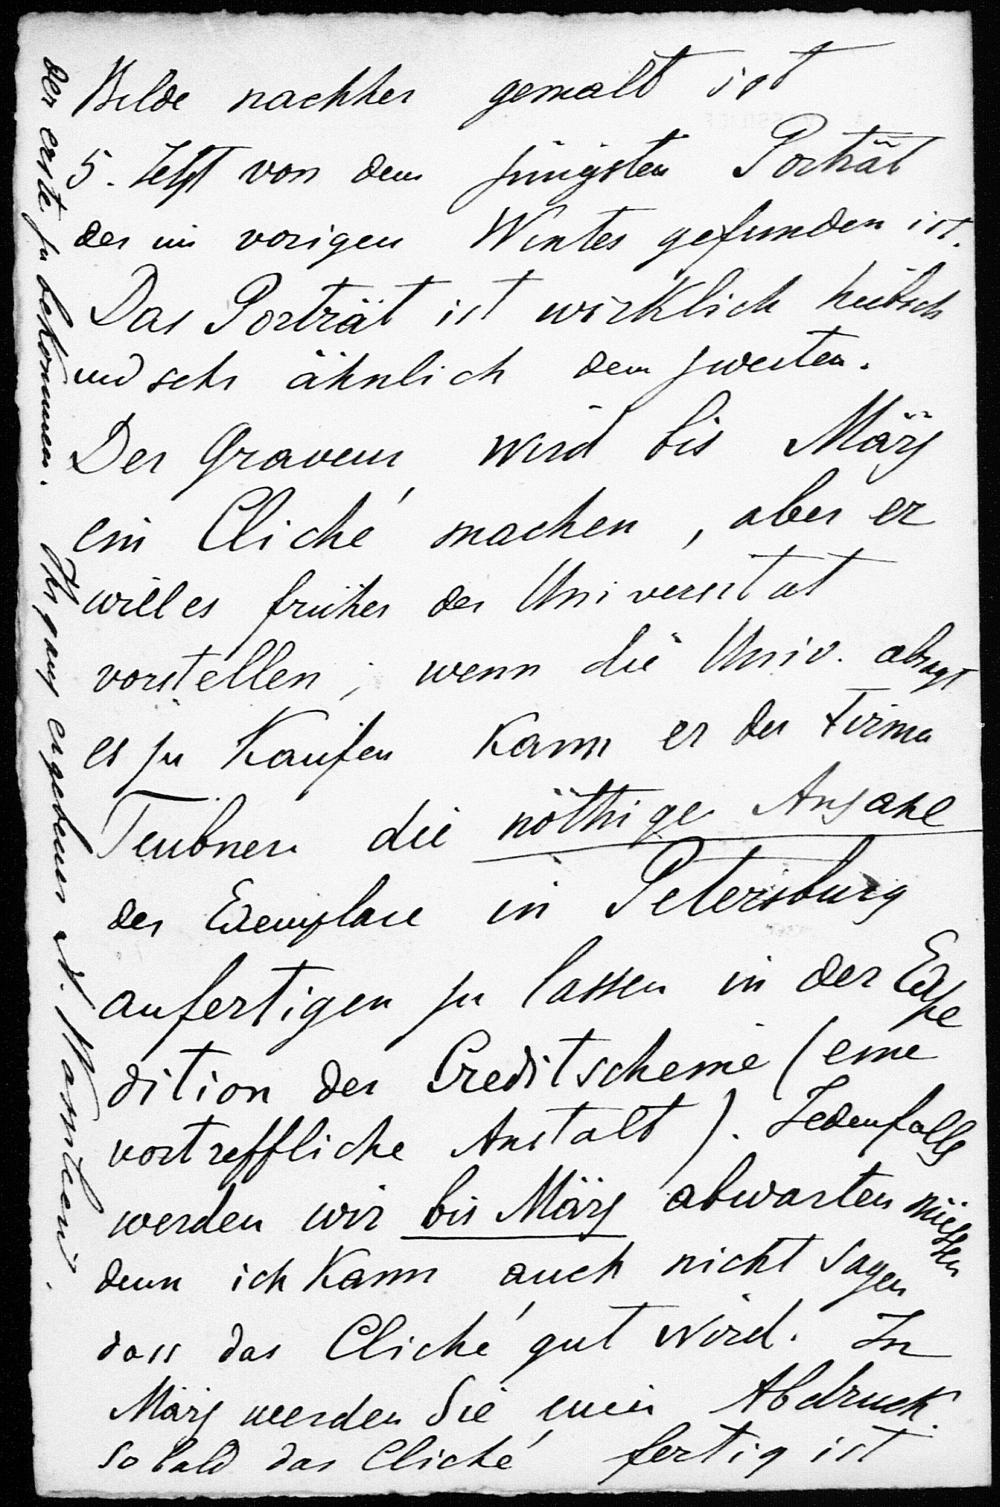 Bilde nachher gemalt ist
5. Jetzt von dem jüngsten Porträt
der im vorigen Winter gefunden ist.
Das Porträt ist wirklich hübsch
und sehr ähnlich dem zweiten.
Der Graveur wird bis März
ein Cliché machen, aber er
will es früher der Universität
vorstellen; wenn die Univ. absagt
es zu Kaufen Kann er der Firma
Teubner die nöthige Anzahl
der Exemplare in Petersburg
anfertigen zu lassen in der Expe
dition der Creditscheine (eine
vortreffliche Anstalt). Jedenfalls
werden wir bis März abwarten müssen
denn ich Kann auch nicht sagen
dass das Cliché gut wird. In
März werden Sie einen Abdruck.
sobald das Cliché fertig ist
der erste zu bekommen. Ihr ganz ergebener A. Wassiliew.